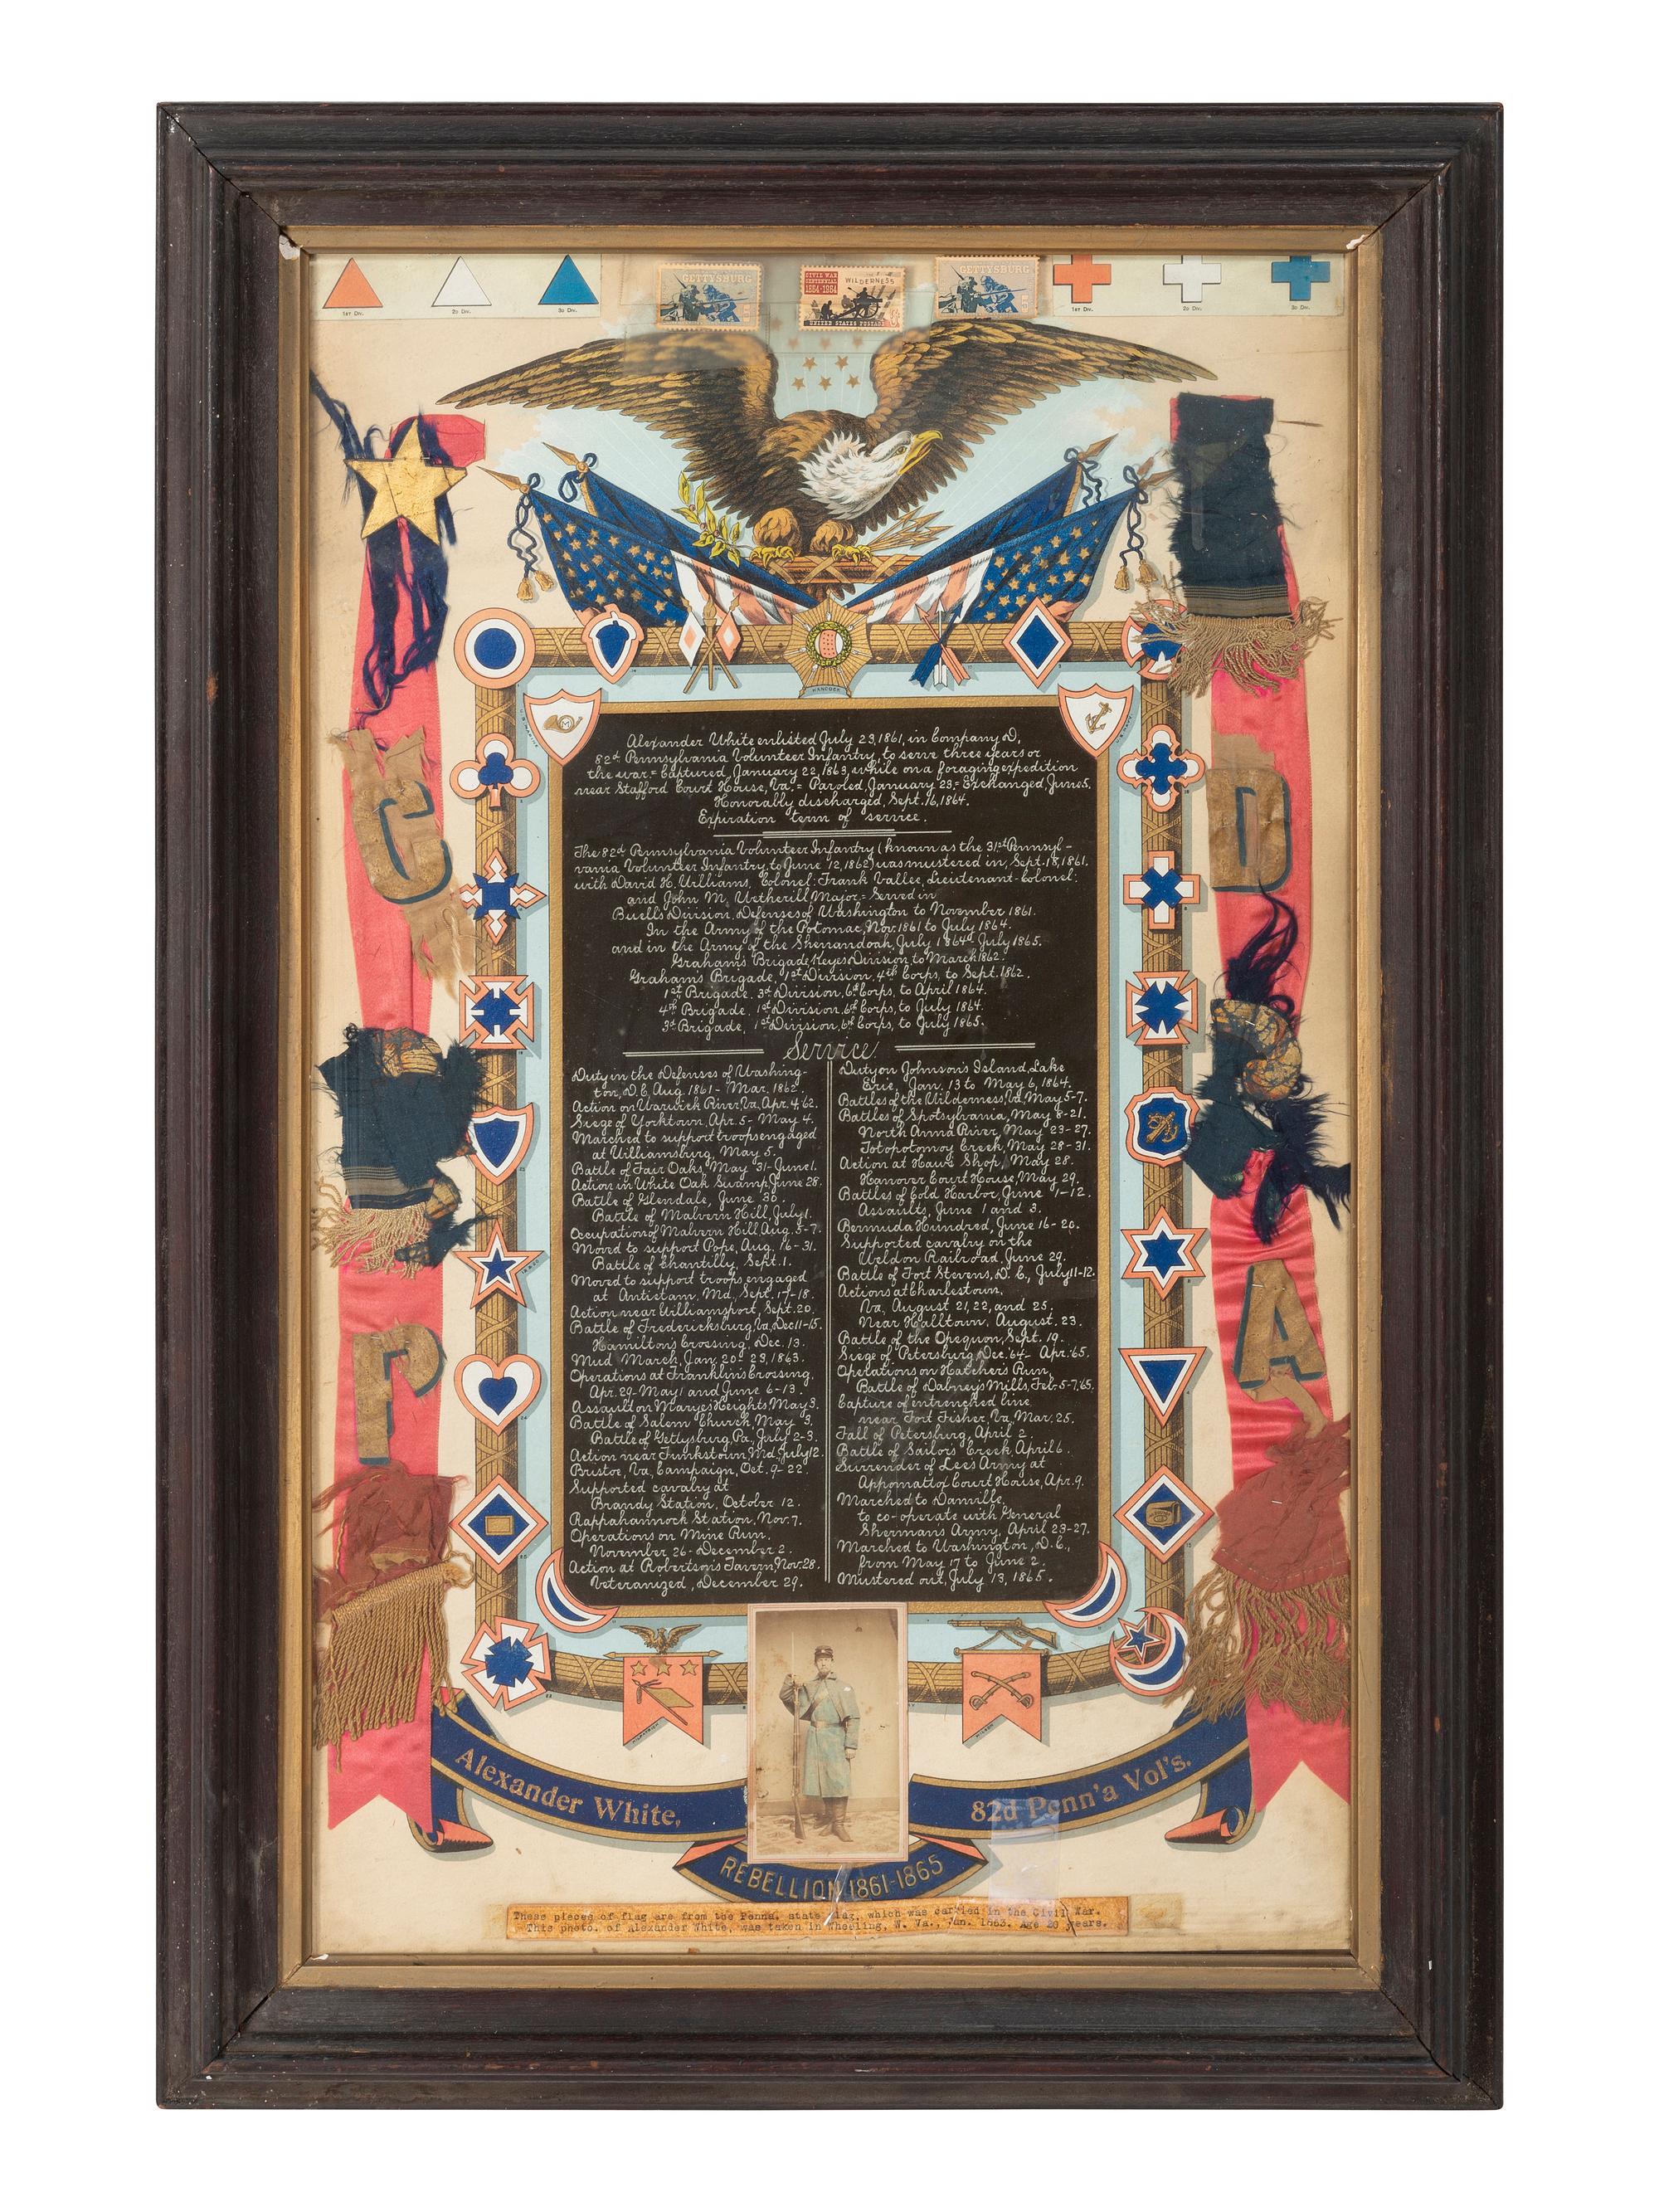 1ST DIV.
2D DIV.
3D DIV.
GETTYSBURG
CIVIL WAR
CENTENNIAL
1864-1964
WILDERNESS
UNITED STATES POSTAGE
GETTYSBURG
1ST DIV.
2D DIV.
3D DIV.
HANCOCK
Alexander White enlisted July 23, 1861, in Company D,
82d Pennsylvania Volunteer Infantry, to serve three years or
the war = Captured, January 22, 1863, while on a foraging expedition
near Stafford Court House, Va. = Paroled, January 23. = Exchanged, June 5.
Honorably discharged, Sept. 16, 1864.
Expiration term of service.
The 82d Pennsylvania Volunteer Infantry (known as the 31st Pennsyl-
vania Volunteer Infantry, to June 12, 1862) was mustered in, Sept. 18, 1861.
with David H. Williams, Colonel: Frank Vallee, Lieutenant-Colonel:
and John M. Wetherill, Major = Served in
Buells Division, Defenses of Washington to November 1861.
In the Army of the Potomac, Nov. 1861 to July 1864.
and in the Army of the Shenandoah, July 1864 - July 1865.
Graham's Brigade, Keyes Division, to March 1862.
Graham's Brigade, 1st Division, 4th Corps, to Sept. 1862.
1st Brigade, 3d Division, 6th Corps, to April 1864.
4th Brigade, 1st Division, 6th Corps, to July 1864.
3d Brigade, 1st Division, 6th Corps, to July 1865.
Service.
Duty in the Defenses of Washing-
ton, D.C. Aug. 1861 - Mar. 1862.
Action on Warwick River, Va, Apr. 4, 62.
Siege of Yorktown, Apr. 5 - May 4.
Marched to support troops engaged
at Williamsburg, May 5.
Battle of Fair Oaks, May 31 - June 1.
Action in White Oak Swamp, June 28.
Battle of Glendale, June 30.
Battle of Malvern Hill, July 1.
Occupation of Malvern Hill Aug. 5-7.
Moved to support Pope, Aug. 16-31.
Battle of Chantilly, Sept. 1.
Moved to support troops engaged
at Antietam, Md., Sept. 17-18.
Action near Williamsport, Sept. 20.
Battle of Fredericksburg, Va, Dec 11-15.
Hamilton's Crossing, Dec. 13.
Mud March, Jan. 20-23, 1863.
Operations at Franklin's Crossing,
Apr. 29 - May 1 and June 6-13.
Assault on Maryes Heights, May 3.
Battle of Salem Church, May 3.
Battle of Gettysburg, Pa., July 2-3.
Action near Funkstown, Md., July 12.
Bristoe, Va, Campaign, Oct. 9-22.
Supported cavalry at
Brandy Station, October 12.
Rappahannock Station, Nov. 7.
Operations on Mine Run,
November 26 - December 2.
Action at Robertson's Tavern, Nov. 28.
Veteranized, December 29.
Duty on Johnson's Island, Lake
Erie, Jan. 13 to May 6, 1864.
Battles of the Wilderness, Va, May 5-7.
Battles of Spotsylvania, May 8-21.
North Anna River, May 23-27.
Totopotomoy Creek, May 28-31.
Action at Haws Shop, May 28.
Hanover Court House, May 29.
Battles of Cold Harbor, June 1-12.
Assaults, June 1 and 3.
Bermuda Hundred, June 16-20.
Supported cavalry on the
Weldon Railroad, June 29.
Battle of Fort Stevens, D.C., July 11-12.
Actions at Charlestown,
Va, August 21, 22, and 25.
Near Halltown, August. 23.
Battle of the Opequon, Sept. 19.
Siege of Petersburg, Dec. '64 - Apr. '65.
Operations on Hatcher's Run,
Battle of Dabney's Mills, Feb. 5-7, '65.
Capture of intrenched line
near Fort Fisher, Va, Mar. 25.
Fall of Petersburg, April 2.
Battle of Sailors' Creek, April 6.
Surrender of Lee's Army at
Appomattox Court House, Apr. 9.
Marched to Danville,
to co-operate with General
Sherman's Army, April 23-27.
Marched to Washington, D.C.,
from May 17 to June 2.
Mustered out, July 13, 1865.
C
P
D
A
Alexander White,
82d Penn'a Vol's.
REBELLION 1861-1865
These pieces of flag are from the Penna. state flag, which was carried in the Civil War.
This photo. of Alexander White, was taken in Wheeling, W. Va., Jan. 1863. Age 20 years.